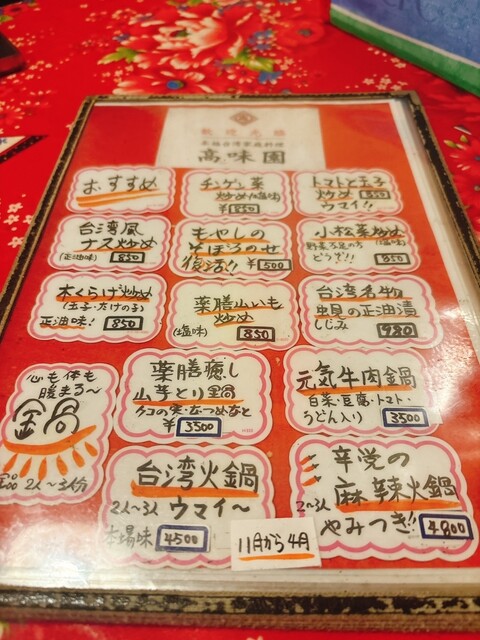 歓迎光臨
本格台湾家庭料理
高味園
おすすめ
チンゲン菜
炒め(塩味)
¥850
トマトと玉子
炒め 850
ウマイ!!
台湾風
ナス炒め
(正油味) 850
もやしの
そぼろのせ
復活!! ¥500
小松菜炒め
野菜不足の方
どうぞ!! 850
木くらげ炒め
(玉子・たけの子)
正油味! 850
薬膳山いも
炒め
(塩味) 850
台湾名物
しじみ
の正油漬
980
心も体も
暖まる〜
鍋
2人〜3人分
薬膳癒し
山芋とり鍋
クコの実・なつめなど
¥3500
元気牛肉鍋
白菜・豆腐・トマト・
うどん入り 3500
台湾火鍋
2人〜3人 ウマイ〜
本場味 4500
辛党の
麻辣火鍋
2〜3人 やみつき!! 4800
11月から4月